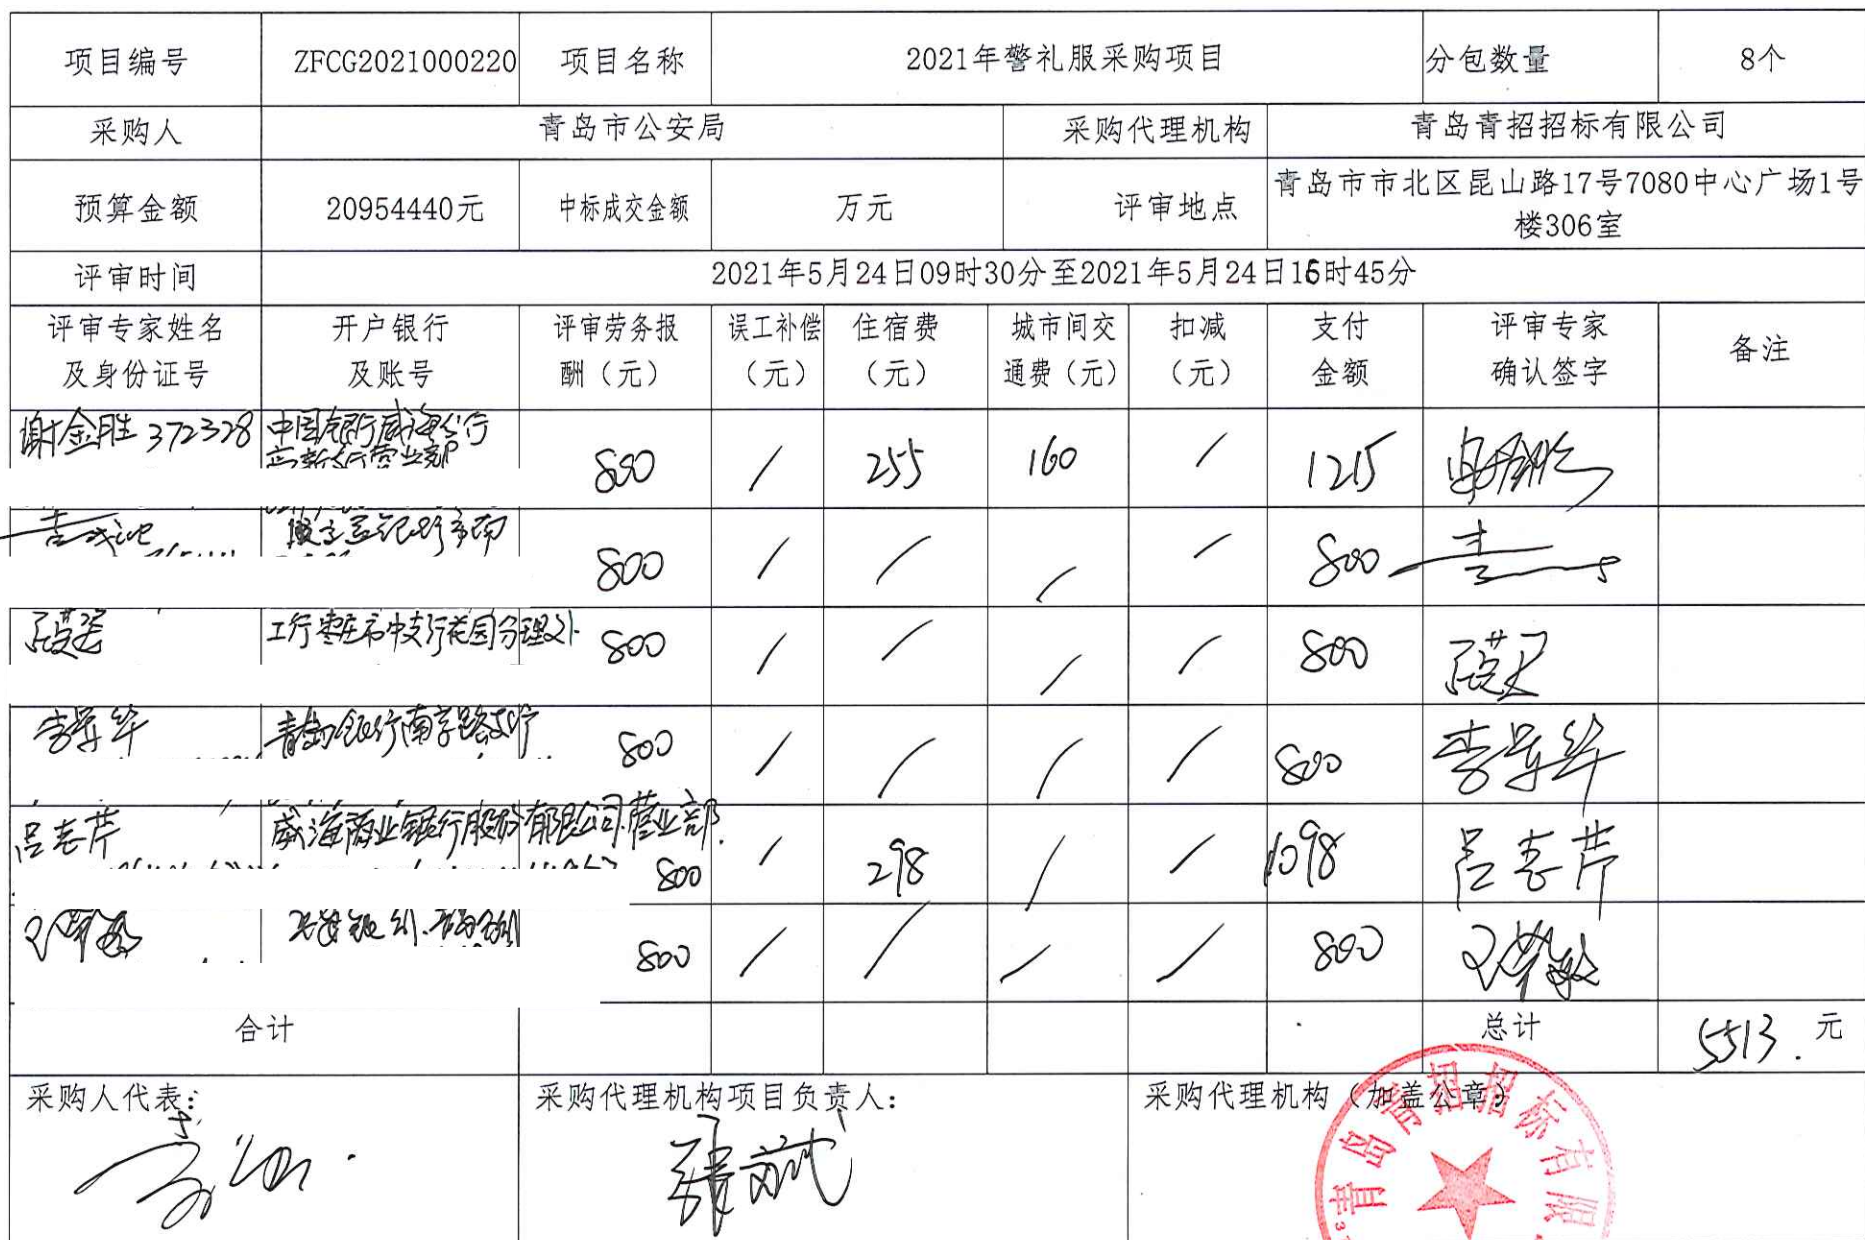 项目编号 ZFCG2021000220 项目名称 2021年警礼服采购项目 分包数量 8个
采购人 青岛市公安局 采购代理机构 青岛青招招标有限公司
预算金额 20954440元 中标成交金额 万元 评审地点 青岛市市北区昆山路17号7080中心广场1号
楼306室
评审时间 2021年5月24日09时30分至2021年5月24日16时45分
评审专家姓名 开户银行 评审劳务报 误工补偿 住宿费 城市间交 扣减 支付 评审专家 备注
及身份证号 及账号 酬（元） （元） （元） 通费（元） （元） 金额 确认签字
谢金胜 372328 中国银行威海分行
高新支行营业部 800 / 255 160 / 1215
800 / / / / 800
工行枣庄市中支行花园分理处 800 / / / / 800
青岛银行南京路支行 800 / / / / 800
吕志芹 威海商业银行股份有限公司营业部 800 / 298 / / 1098 吕志芹
800 / / / / 800
合计 总计 5513. 元
采购人代表： 采购代理机构项目负责人： 采购代理机构（加盖公章）
张斌
青岛青招招标有限